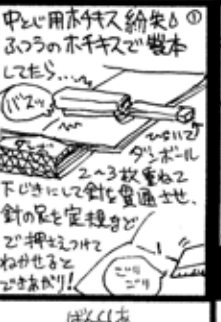 中とじ用ホチキス紛失 ①
ふつうのホチキスで製本
してたら…
バスッ
ひらいて
ダンボール
2〜3枚重ねて
下じきにして針を貫通させ、
針の足を定規など
で押さえつけて
ねかせると
できあがり!
ゴリ
ゴリ